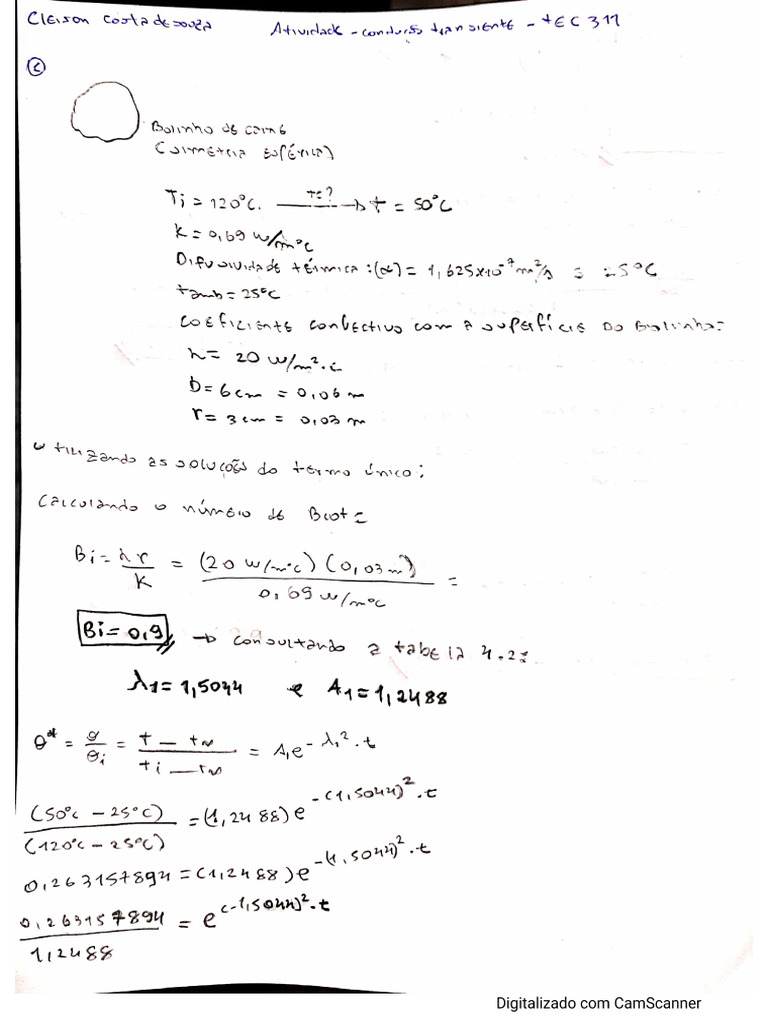 Cleison Costa de Souza Atividade - condução transiente - TEC 311
C
Bolinho de carne
(Geometria esférica)
Ti = 120°C. t=? → T = 50°C
K = 0,69 W/m°C
Difusividade térmica: (α) = 1,625x10⁻⁷ m²/s = 25°C
Tamb = 25°C
coeficiente convectivo com a superfície do Bolinho:
h = 20 W/m².c
D = 6 cm = 0,06 m
r = 3 cm = 0,03 m
utilizando as soluções do termo único:
Calculando o número de Biot =
Bi = h r / K = (20 W/m²c) (0,03 m) / 0,69 W/m°c =
Bi = 0,9 → consultando a tabela 4.2:
λ1 = 1,5044 e A1 = 1,2488
θ* = θ/θi = T - T∞ / Ti - T∞ = A₁e^-λ₁².t
(50°c - 25°C) / (120°c - 25°C) = (1,2488) e^-(1,5044)².t
0,263157894 = (1,2488) e^-(1,5044)².t
0,263157894 / 1,2488 = e^(-1,5044)².t
Digitalizado com CamScanner